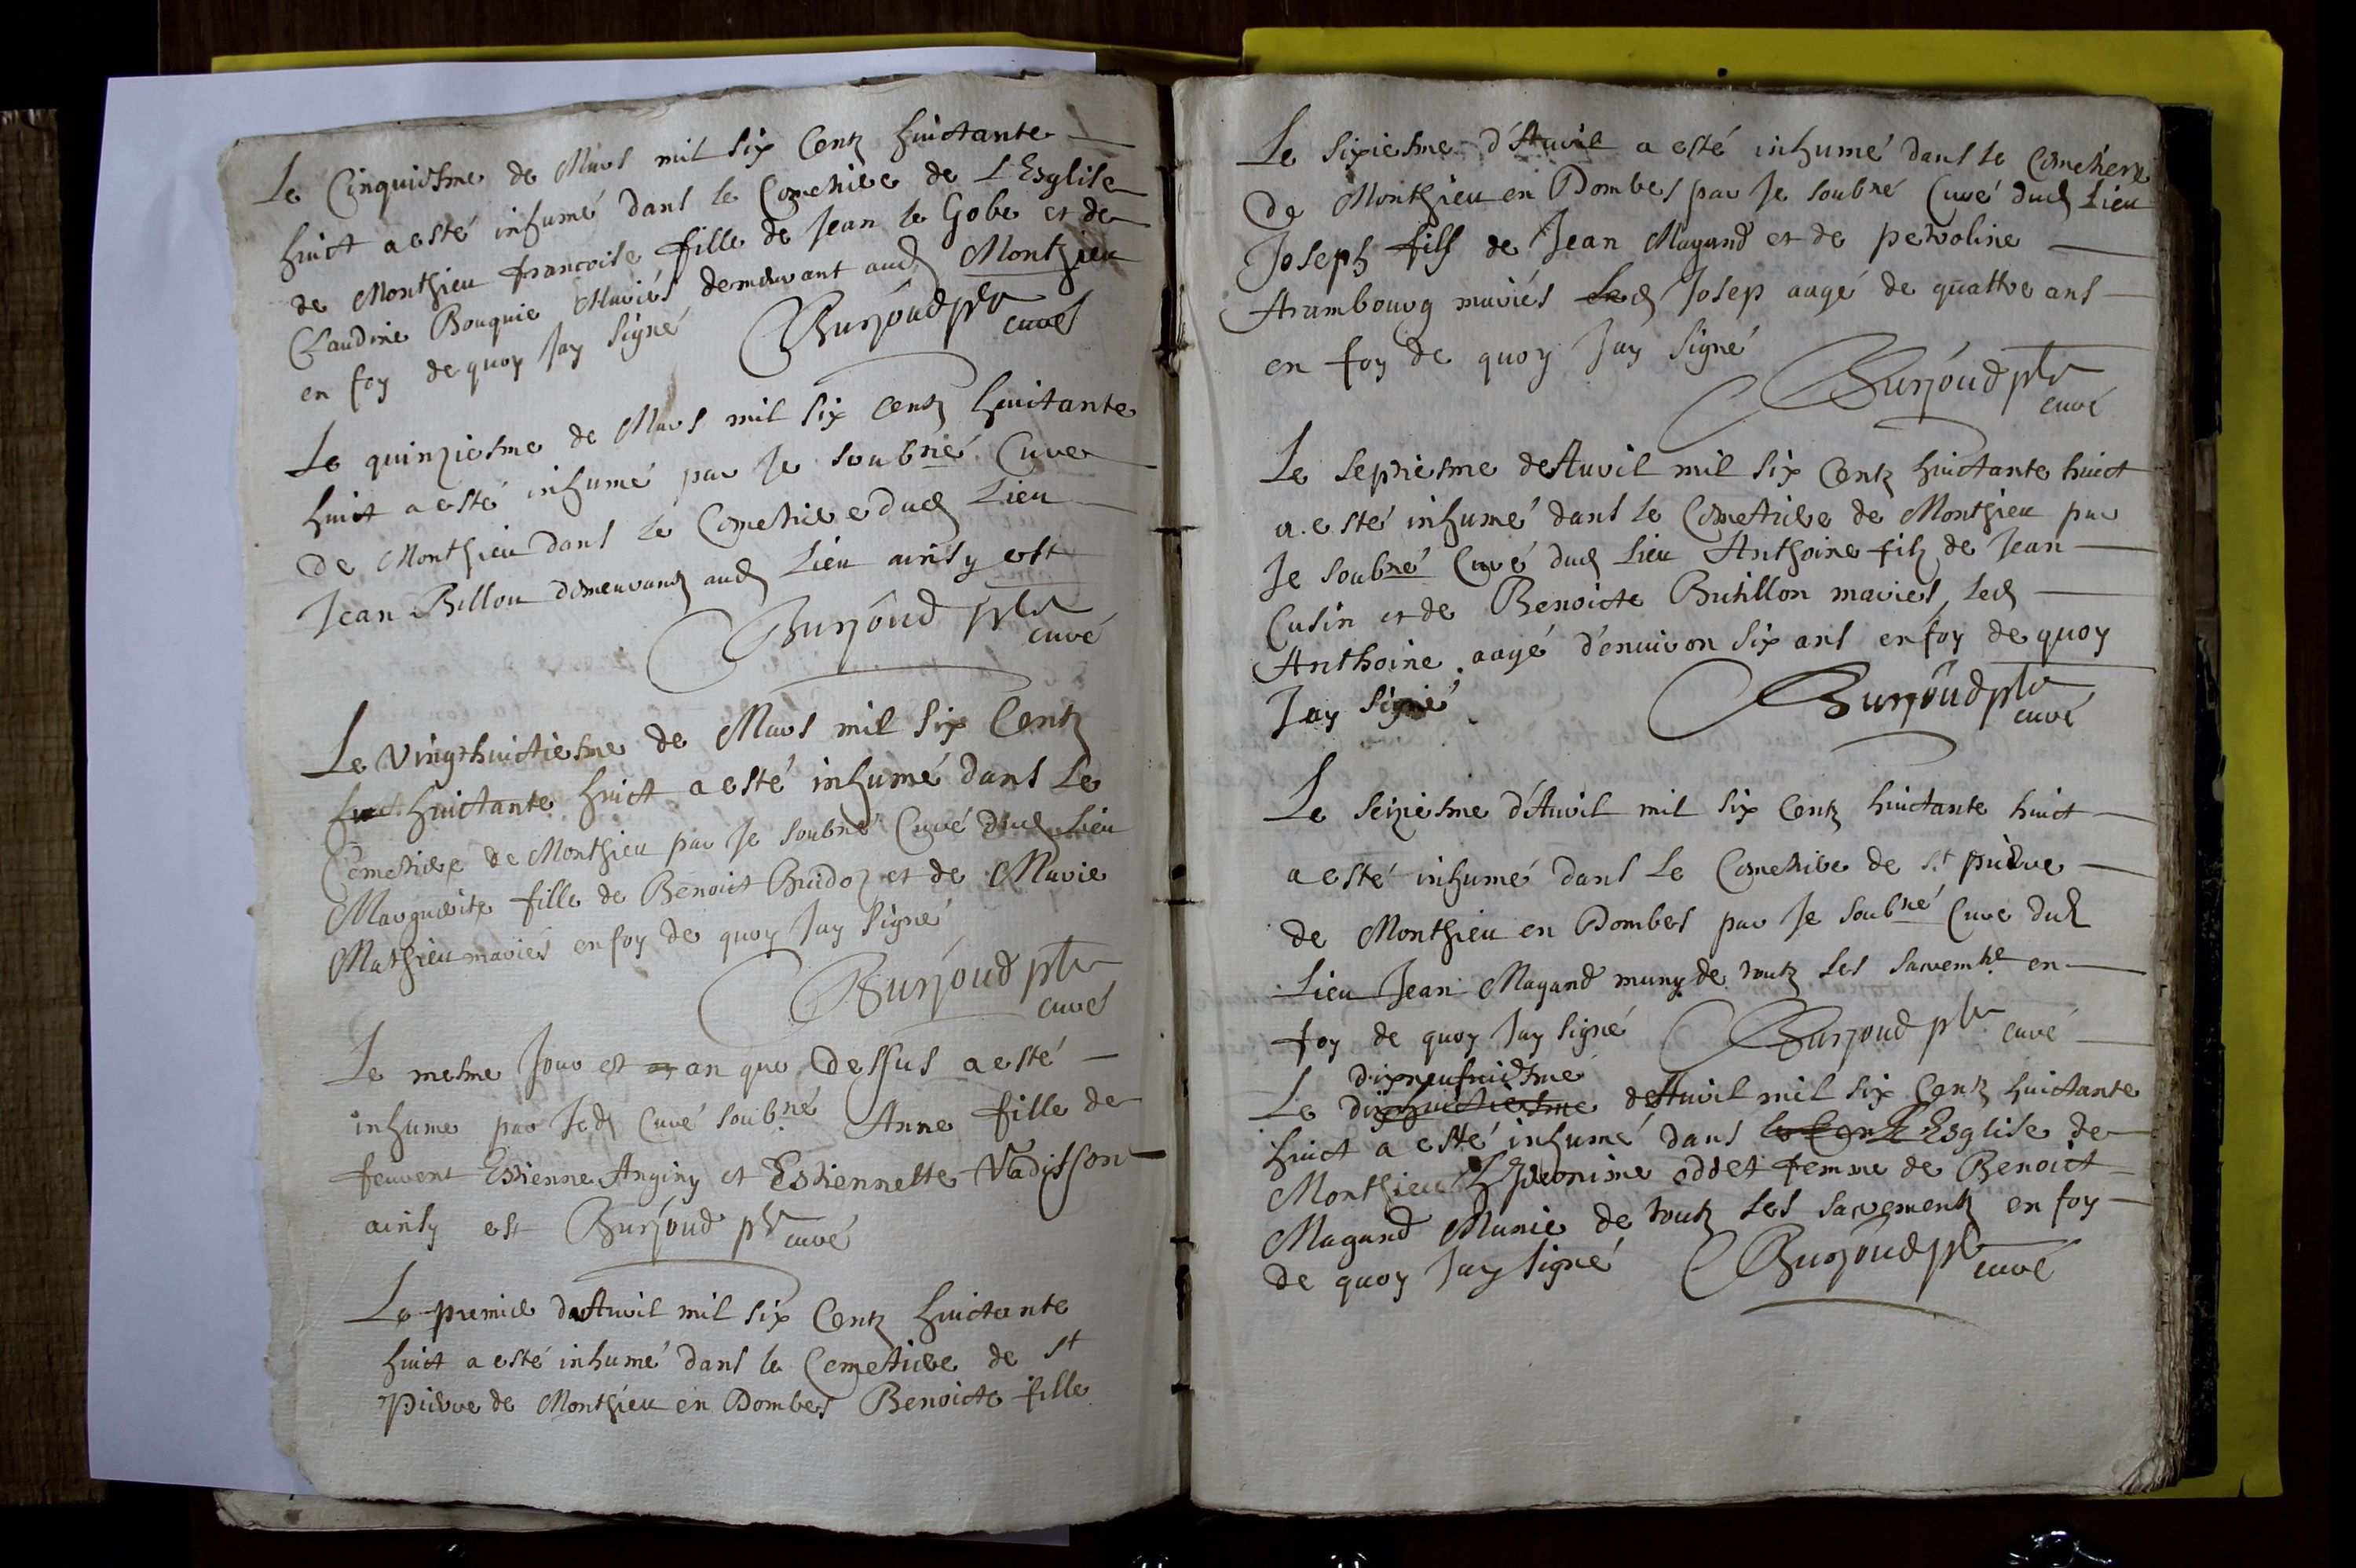 Le Cinquiesme de Mars mil six Centz huictante
huict a esté inhumé dans le Cometiere de L'Esglise
de Monthieu francoise fille de Jean le Gobe et de
Claudine Bouquie Mariés demeurant aud Monthieu
en foy de quoy Jay signé Burjoud pbr
curé
Le quinziesme de Mars mil six Centz huictante
huict a esté inhumé par Je soubné Curé
de Monthieu dans le Cometiere dud Lieu
Jean Billou demeurand aud Lieu ainsy est
Burjoud pbr
curé
Le vingthuictiesme de Mars mil six Centz
huictante huict a esté inhumé dans Le
Cemetiere de Monthieu par Je soubné Curé dud Lieu
Marguerite fille de Benoict Buidoz et de Marie
Mathieu mariés en foy de quoy Jay signé
Burjoud pbr
curé
Le mesme Jour et an que dessus a esté
inhume par Jed Curé soubné Anne fille de
feurent Estienne Anginy et Estiennette Vadisson
ainsy est Burjoud pbr curé
Le premier d'Auvil mil six Centz huictante
huict a esté inhumé dans le Cemetiere de St
Pierre de Monthieu en Dombes Benoicte fille
Le sixiesme d'Auvil a esté inhumé dans le Cometiere
de Monthieu en Dombes par Je soubné Curé dud Lieu
Joseph fils de Jean Magand et de petroline
Arambourg mariés Led Josep aagé de quattre ans
en foy de quoy Jay signé
Burjoud pbr
curé
Le septiesme d'Auvil mil six Centz huictante huict
a esté inhumé dans le Cimetiere de Monthieu par
Je soubné Curé dud Lieu Anthoine filz de Jean
Cusin et de Benoicte Butillon mariés, led
Anthoine aagé d'environ six ans en foy de quoy
Jay signé Burjoud pbr
curé
Le seiziesme d'Auvil mil six Centz huictante huict
a esté inhumé dans Le Cometiere de St pierre
de Monthieu en Dombes par Je soubné Curé dud
Lieu Jean Magand muny de toutz les sacremtz en
foy de quoy Jay signé Burjoud pbr curé
dixneufviesme
Le dixhuictiesme d'Auvil mil six Centz huictante
huict a esté inhumé dans Esglise de
Monthieu Hieronime oddet femme de Benoict
Magand Munie de toutz les sacrementz en foy
de quoy Jay signé Burjoud pbr curé